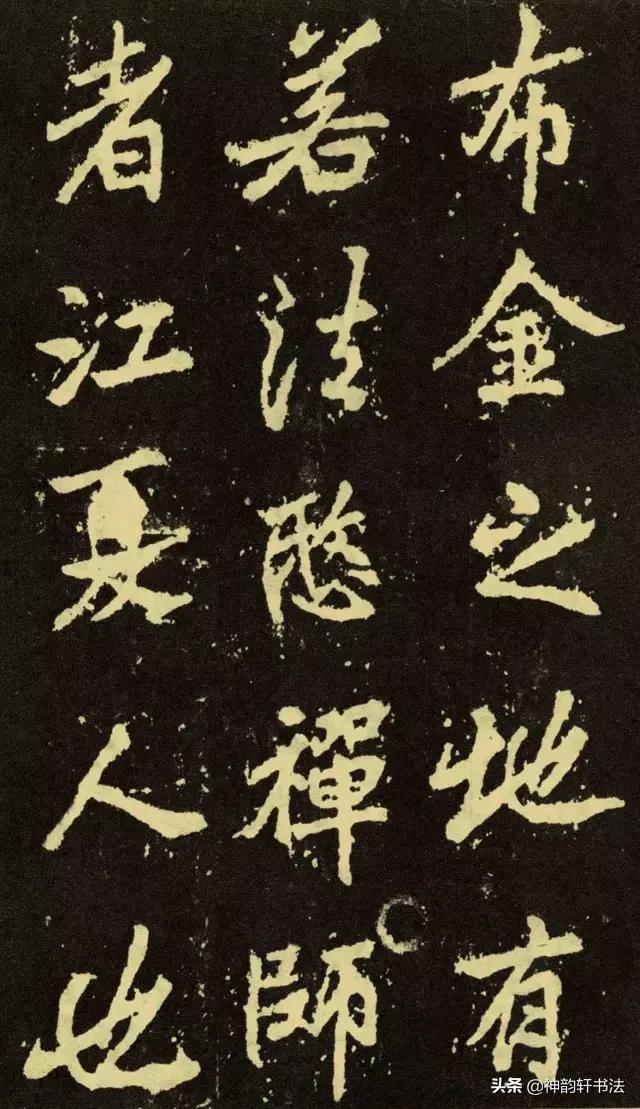 布金之地有
若法愍禪師
者江夏人也
头条 @神韵轩书法